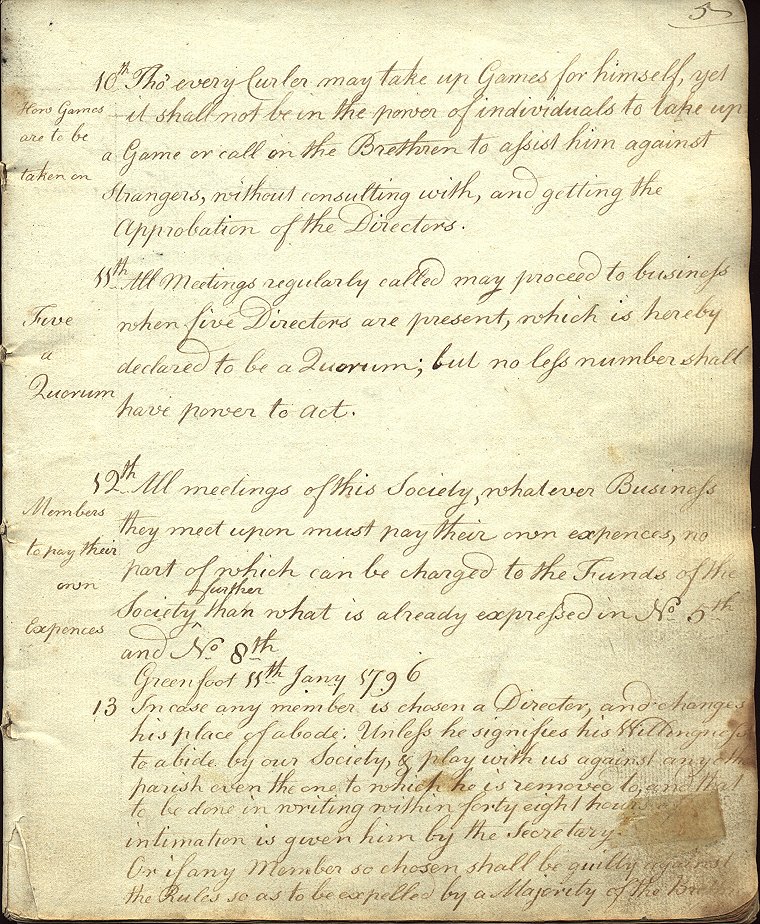 5
10th Tho' every Curler may take up Games for himself, yet
How Games
it shall not be in the power of individuals to take up
are to be
a Game or call on the Brethren to assist him against
taken on
Strangers, without consulting with, and getting the
Approbation of the Directors.
11th All Meetings regularly called may proceed to business
Five
when five Directors are present, which is hereby
a
declared to be a Quorum; but no less number shall
Quorum
have power to act.
12th All meetings of this Society, whatever Business
Members
they meet upon must pay their own expences, no
to pay their
part of which can be charged to the Funds of the
own
further
Society than what is already expressed in No. 5th
Expences
and No. 8th
Greenfoot 11th Jany 1796
13 In case any member is chosen a Director, and changes
his place of abode. Unless he signifies his Willingness
to abide by our Society, & play with us against any
parish even the one to which he is removed to, and that
to be done in writing within forty eight hours
intimation is given him by the Secretary.
Or if any Member so chosen shall be guilty against
the Rules so as to be expelled by a Majority of the